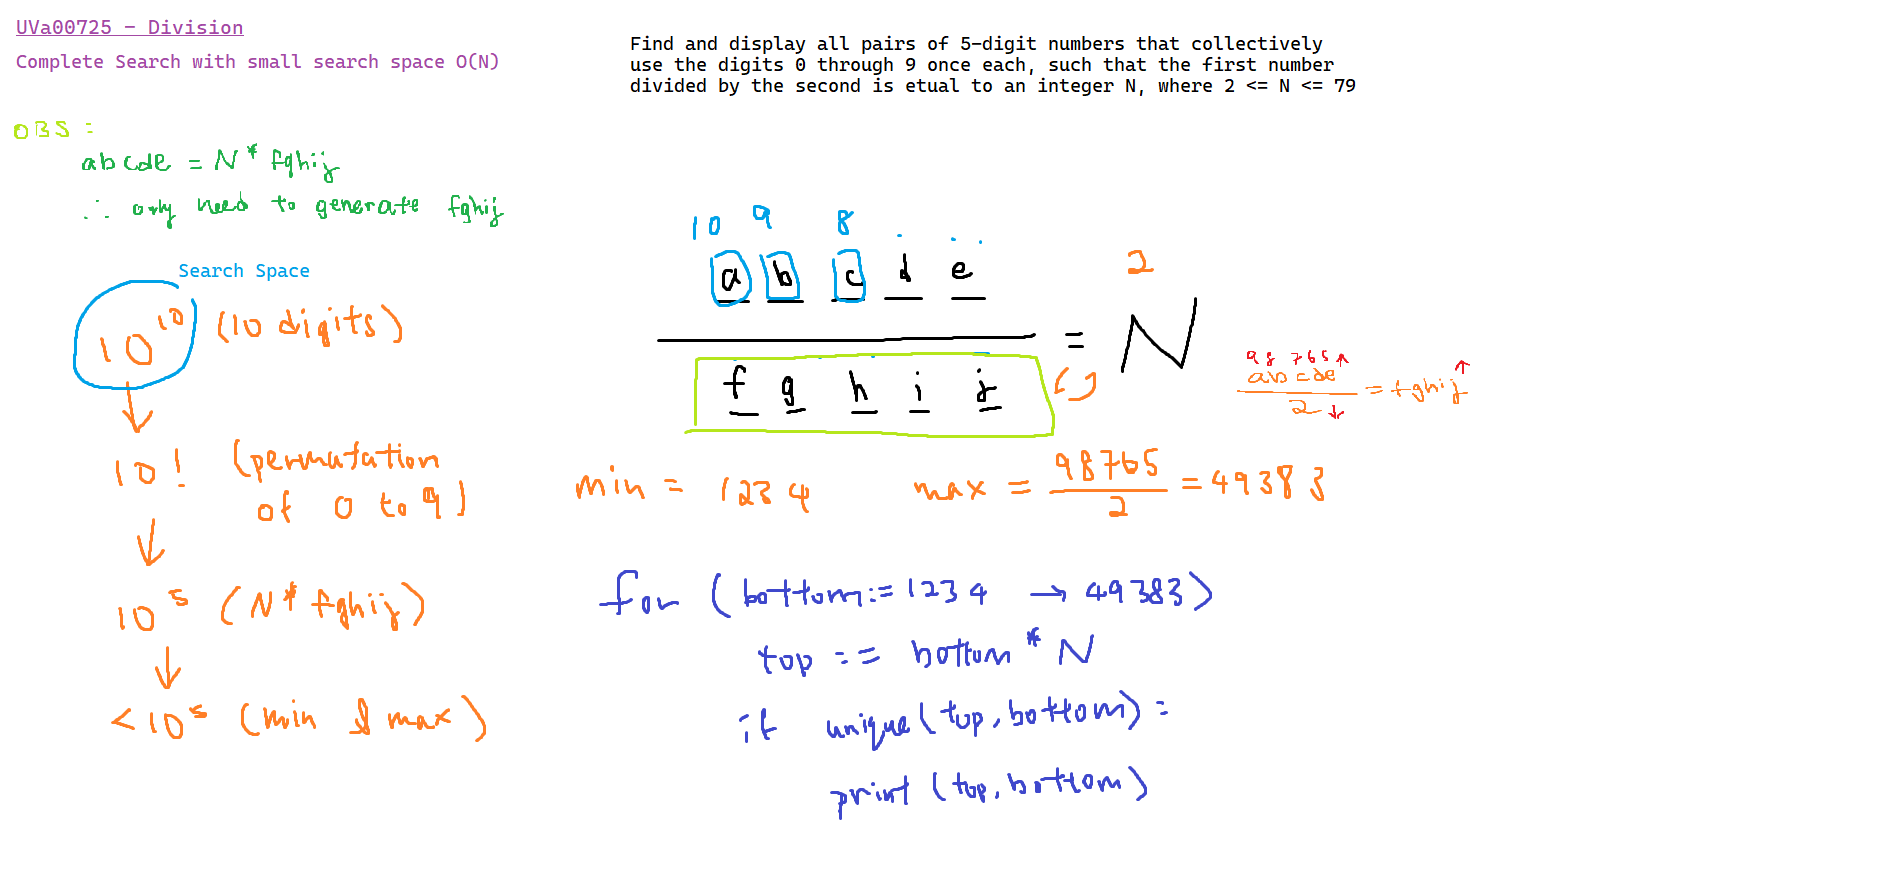 UVa00725 - Division
Complete Search with small search space O(N)
Find and display all pairs of 5-digit numbers that collectively
use the digits 0 through 9 once each, such that the first number
divided by the second is etual to an integer N, where 2 <= N <= 79
OBS :
abcde = N * fghij
∴ only need to generate fghij
Search Space
10^10 (10 digits)
10! (permutation
of 0 to 9)
10^5 (N * fghij)
<10^5 (min & max)
10 9 8 . . .
a b c d e
2
= N
f g h i j
98765↑
abcde
2↓
= fghij↑
min = 1234
max = 98765 / 2 = 49383
for (bottom := 1234 → 49383)
top := bottom * N
if unique(top, bottom) :
print (top, bottom)